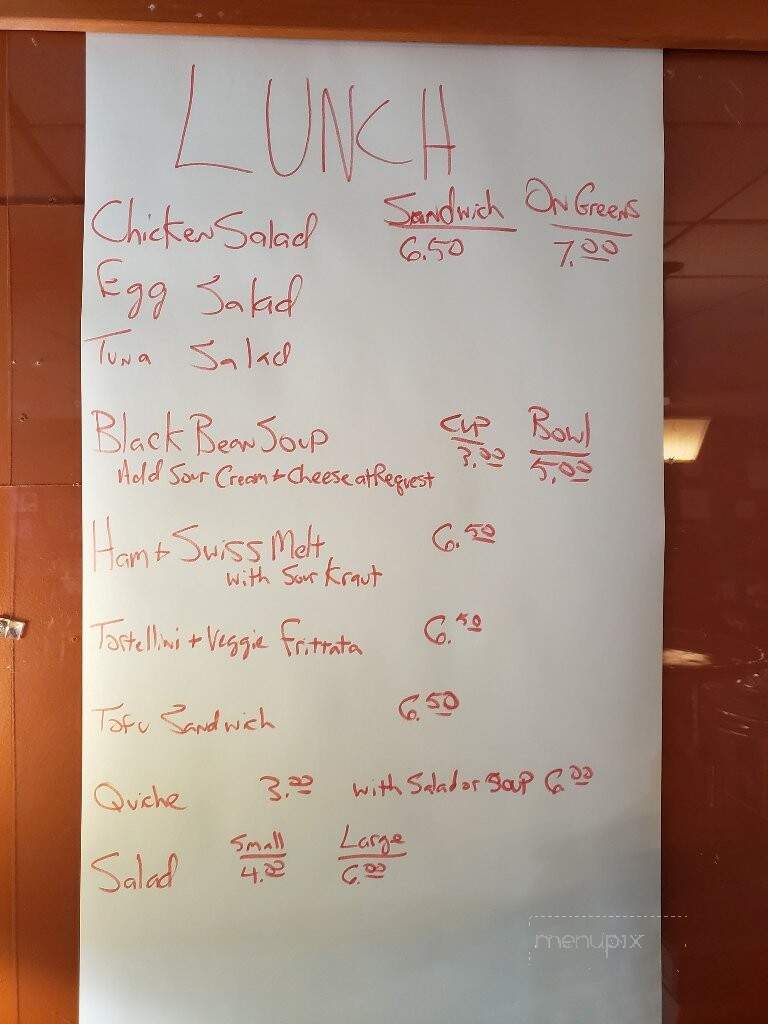 LUNCH
Sandwich On Greens
Chicken Salad 6.50 7.00
Egg Salad
Tuna Salad
Cup Bowl
Black Bean Soup 3.00 5.00
Add Sour Cream + Cheese at Request
Ham + Swiss Melt 6.50
with Sour Kraut
Tortellini + Veggie Frittata 6.50
Tofu Sandwich 6.50
Quiche 3.00 with Salad or Soup 6.00
Small Large
Salad 4.00 6.00
menupix